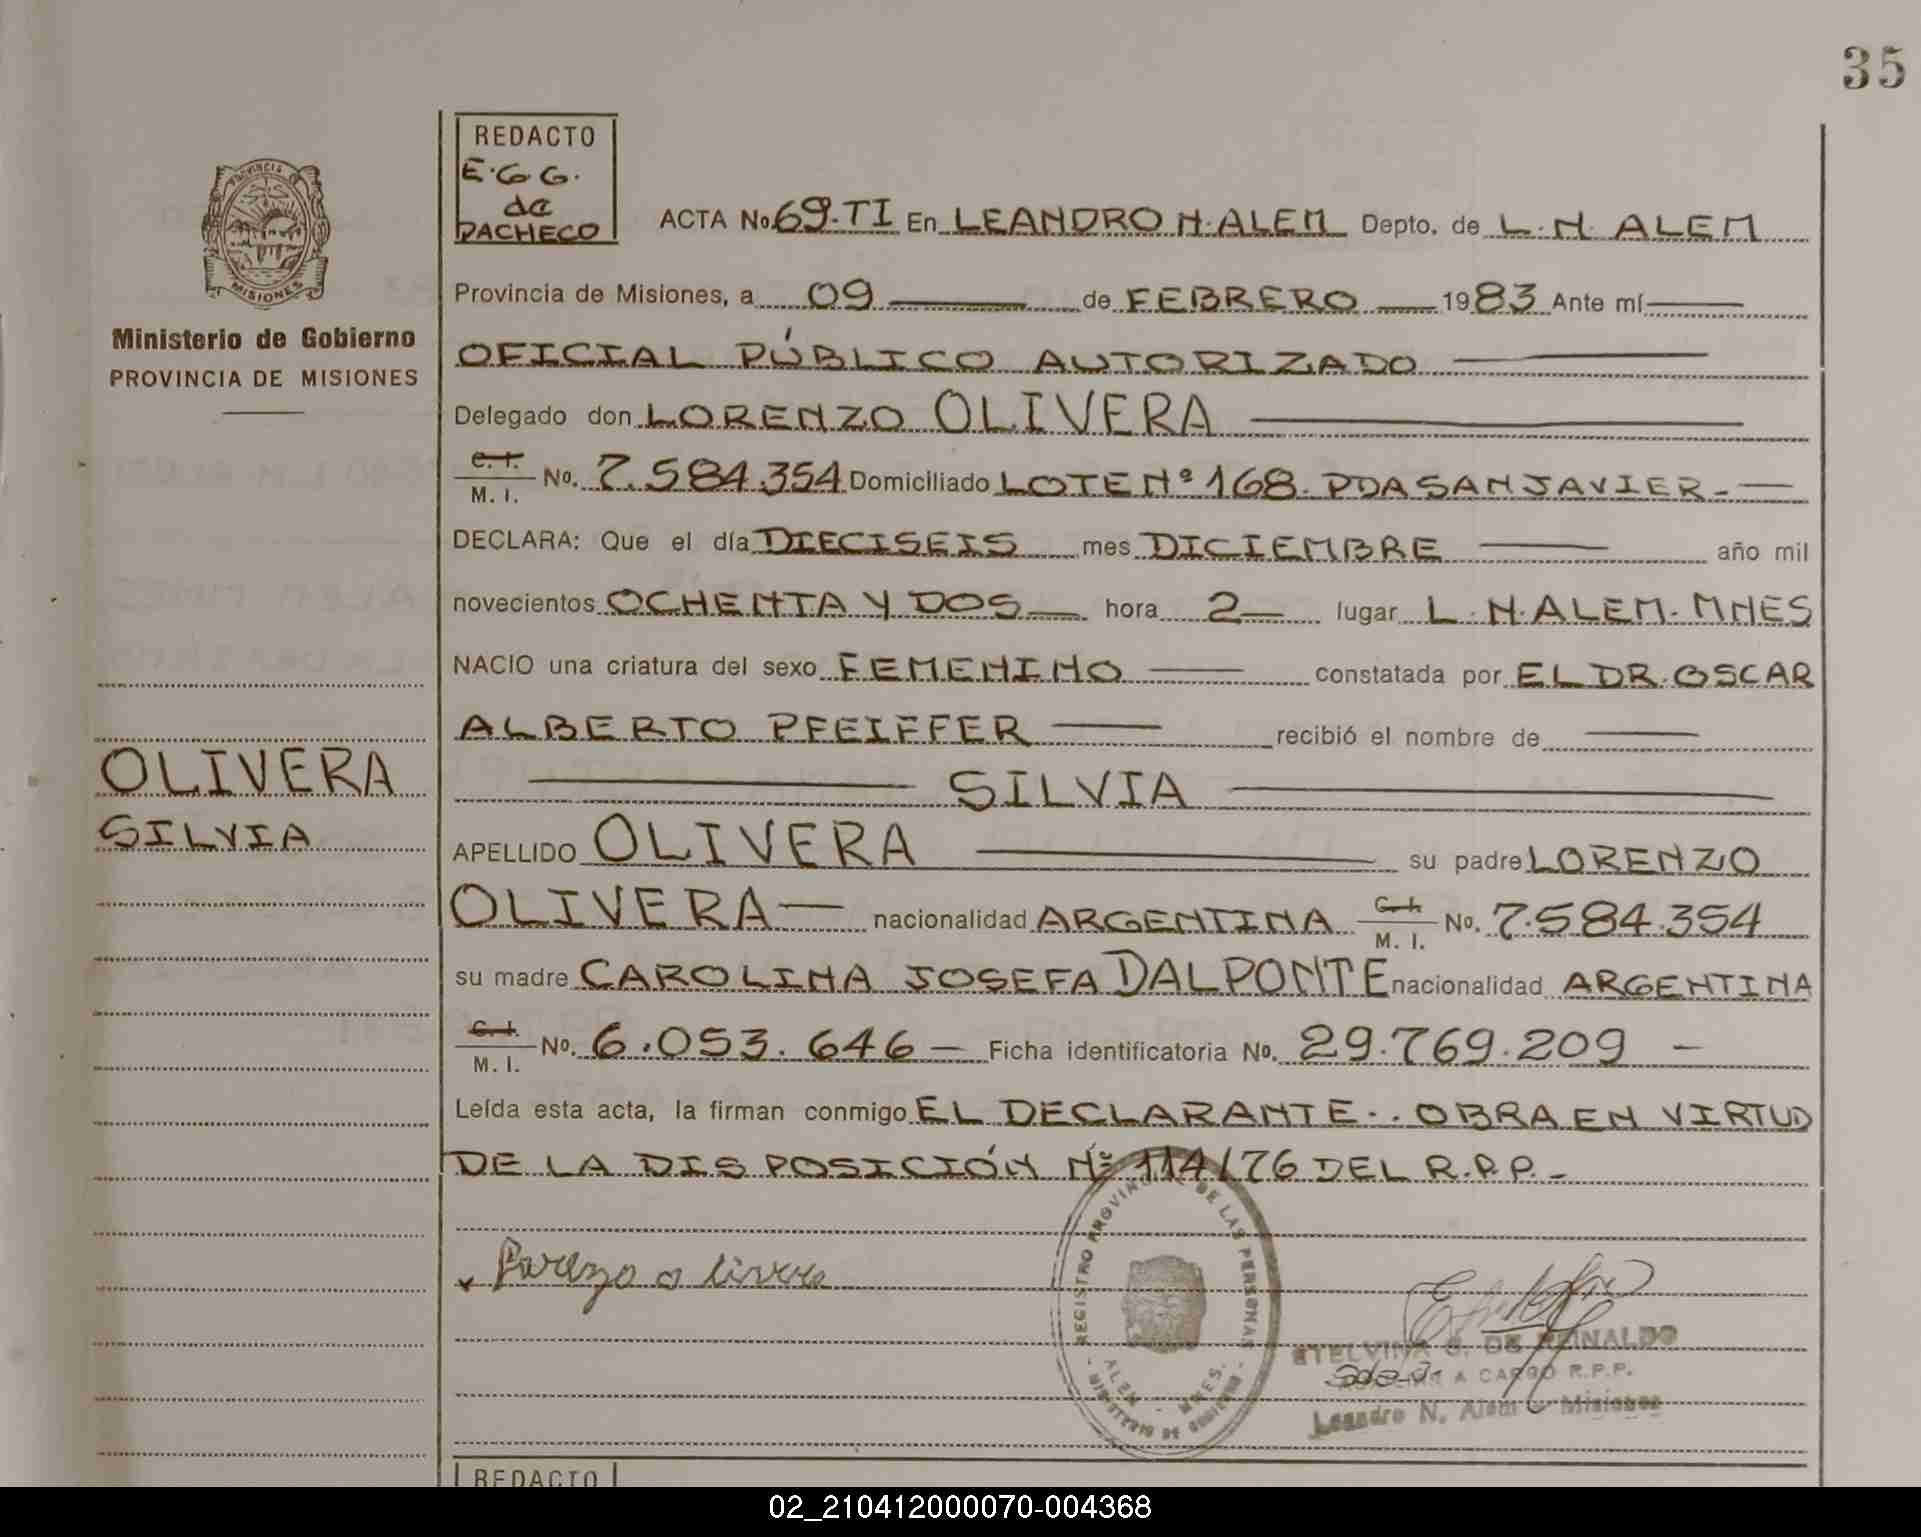 35
REDACTO
E.G.G.
de
PACHECO
ACTA No. 69.TI En LEANDRO N. ALEM Depto. de L. N. ALEM
PROVINCIA DE
MISIONES
Provincia de Misiones, a 09 de FEBRERO 1983 Ante mí
Ministerio de Gobierno
PROVINCIA DE MISIONES
OFICIAL PÚBLICO AUTORIZADO
Delegado don LORENZO OLIVERA
C. I. M. I. No. 7.584.354 Domiciliado LOTE Nº 168. PDA SAN JAVIER.-
DECLARA: Que el día DIECISEIS mes DICIEMBRE año mil
novecientos OCHENTA Y DOS hora 2 lugar L. N. ALEM. MNES
NACIO una criatura del sexo FEMENINO constatada por EL DR. OSCAR
ALBERTO PFEIFFER recibió el nombre de
SILVIA
OLIVERA
SILVIA
APELLIDO OLIVERA su padre LORENZO
OLIVERA nacionalidad ARGENTINA C. I. M. I. No. 7.584.354
su madre CAROLINA JOSEFA DALPONTE nacionalidad ARGENTINA
C. I. M. I. No. 6.053.646 — Ficha identificatoria No. 29.769.209 —
Leída esta acta, la firman conmigo EL DECLARANTE.. OBRA EN VIRTUD
DE LA DISPOSICIÓN Nº 114/76 DEL R.P.P.-
REGISTRO PROVINCIAL DE LAS PERSONAS
ALEM - MNES.
ETELVINA G. DE REINALDO
A CARGO R.P.P.
Leandro N. Alem - Misiones
REDACTO
02_210412000070-004368